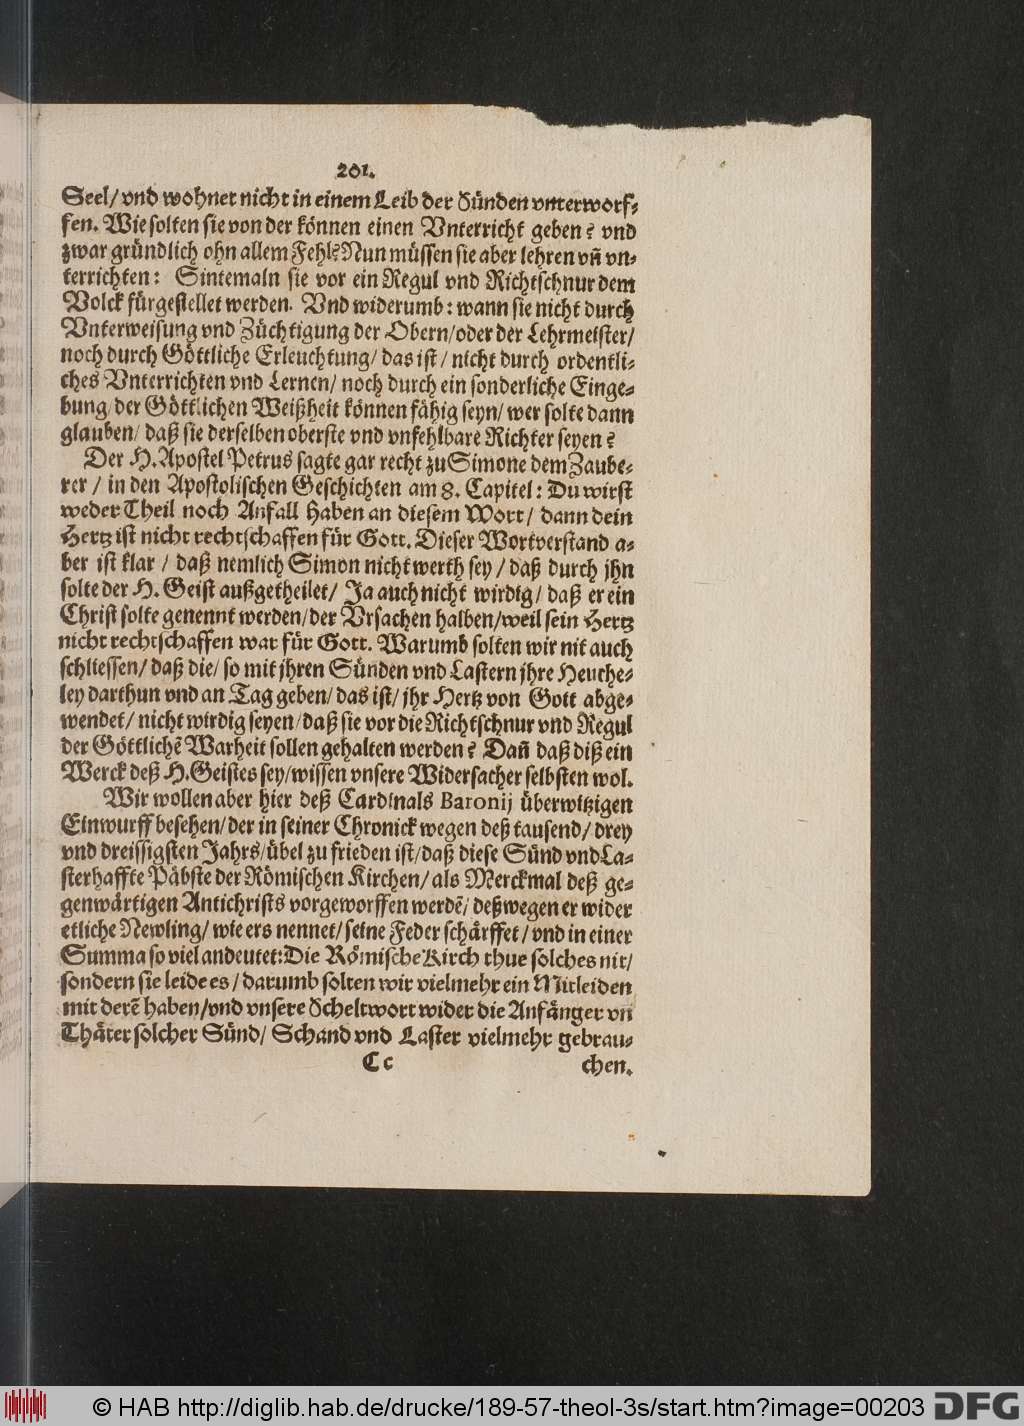 201.
Seel/ vnd wohnet nicht in einem Leib der Sünden vnterworf-
fen. Wie solten sie von der können einen Vnterricht geben? vnd
zwar gründlich ohn allem Fehl? Nun müssen sie aber lehren vñ vn-
terrichten: Sintemaln sie vor ein Regul vnd Richtschnur dem
Volck fürgestellet werden. Vnd widerumb: wann sie nicht durch
Vnterweisung vnd Züchtigung der Obern/ oder der Lehrmeister/
noch durch Göttliche Erleuchtung/ das ist/ nicht durch ordentli-
ches Vnterrichten vnd Lernen/ noch durch ein sonderliche Einge-
bung/ der Göttlichen Weißheit können fähig seyn/ wer solte dann
glauben/ daß sie derselben oberste vnd vnfehlbare Richter seyen?
Der H. Apostel Petrus sagte gar recht zu Simone dem Zaube-
rer/ in den Apostolischen Geschichten am 8. Capitel: Du wirst
weder Theil noch Anfall haben an diesem Wort/ dann dein
Hertz ist nicht rechtschaffen für Gott. Dieser Wortverstand a-
ber ist klar/ daß nemlich Simon nicht werth sey/ daß durch jhn
solte der H. Geist außgetheilet/ Ja auch nicht wirdig/ daß er ein
Christ solte genennt werden/ der Vrsachen halben/ weil sein Hertz
nicht rechtschaffen war für Gott. Warumb solten wir nit auch
schliessen/ daß die/ so mit jhren Sünden vnd Lastern jhre Heuche-
ley darthun vnd an Tag geben/ das ist/ jhr Hertz von Gott abge-
wendet/ nicht wirdig seyen/ daß sie vor die Richtschnur vnd Regul
der Göttlichẽ Warheit sollen gehalten werden? Dañ daß diß ein
Werck deß H. Geistes sey/ wissen vnsere Widersacher selbsten wol.
Wir wollen aber hier deß Cardinals Baronij überwitzigen
Einwurff besehen/ der in seiner Chronick wegen deß tausend/ drey
vnd dreissigsten Jahrs/ übel zu frieden ist/ daß diese Sünd vnd La-
sterhaffte Päbste der Römischen Kirchen/ als Merckmal deß ge-
genwärtigen Antichrists vorgeworffen werdẽ/ deßwegen er wider
etliche Newling/ wie ers nennet/ seine Feder schärffet/ vnd in einer
Summa so viel andeutet: Die Römische Kirch thue solches nit/
sondern sie leide es/ darumb solten wir vielmehr ein Mitleiden
mit derẽ haben/ vnd vnsere Scheltwort wider die Anfänger vñ
Thäter solcher Sünd/ Schand vnd Laster vielmehr gebrau-
Cc chen.
© HAB http://diglib.hab.de/drucke/189-57-theol-3s/start.htm?image=00203 DFG